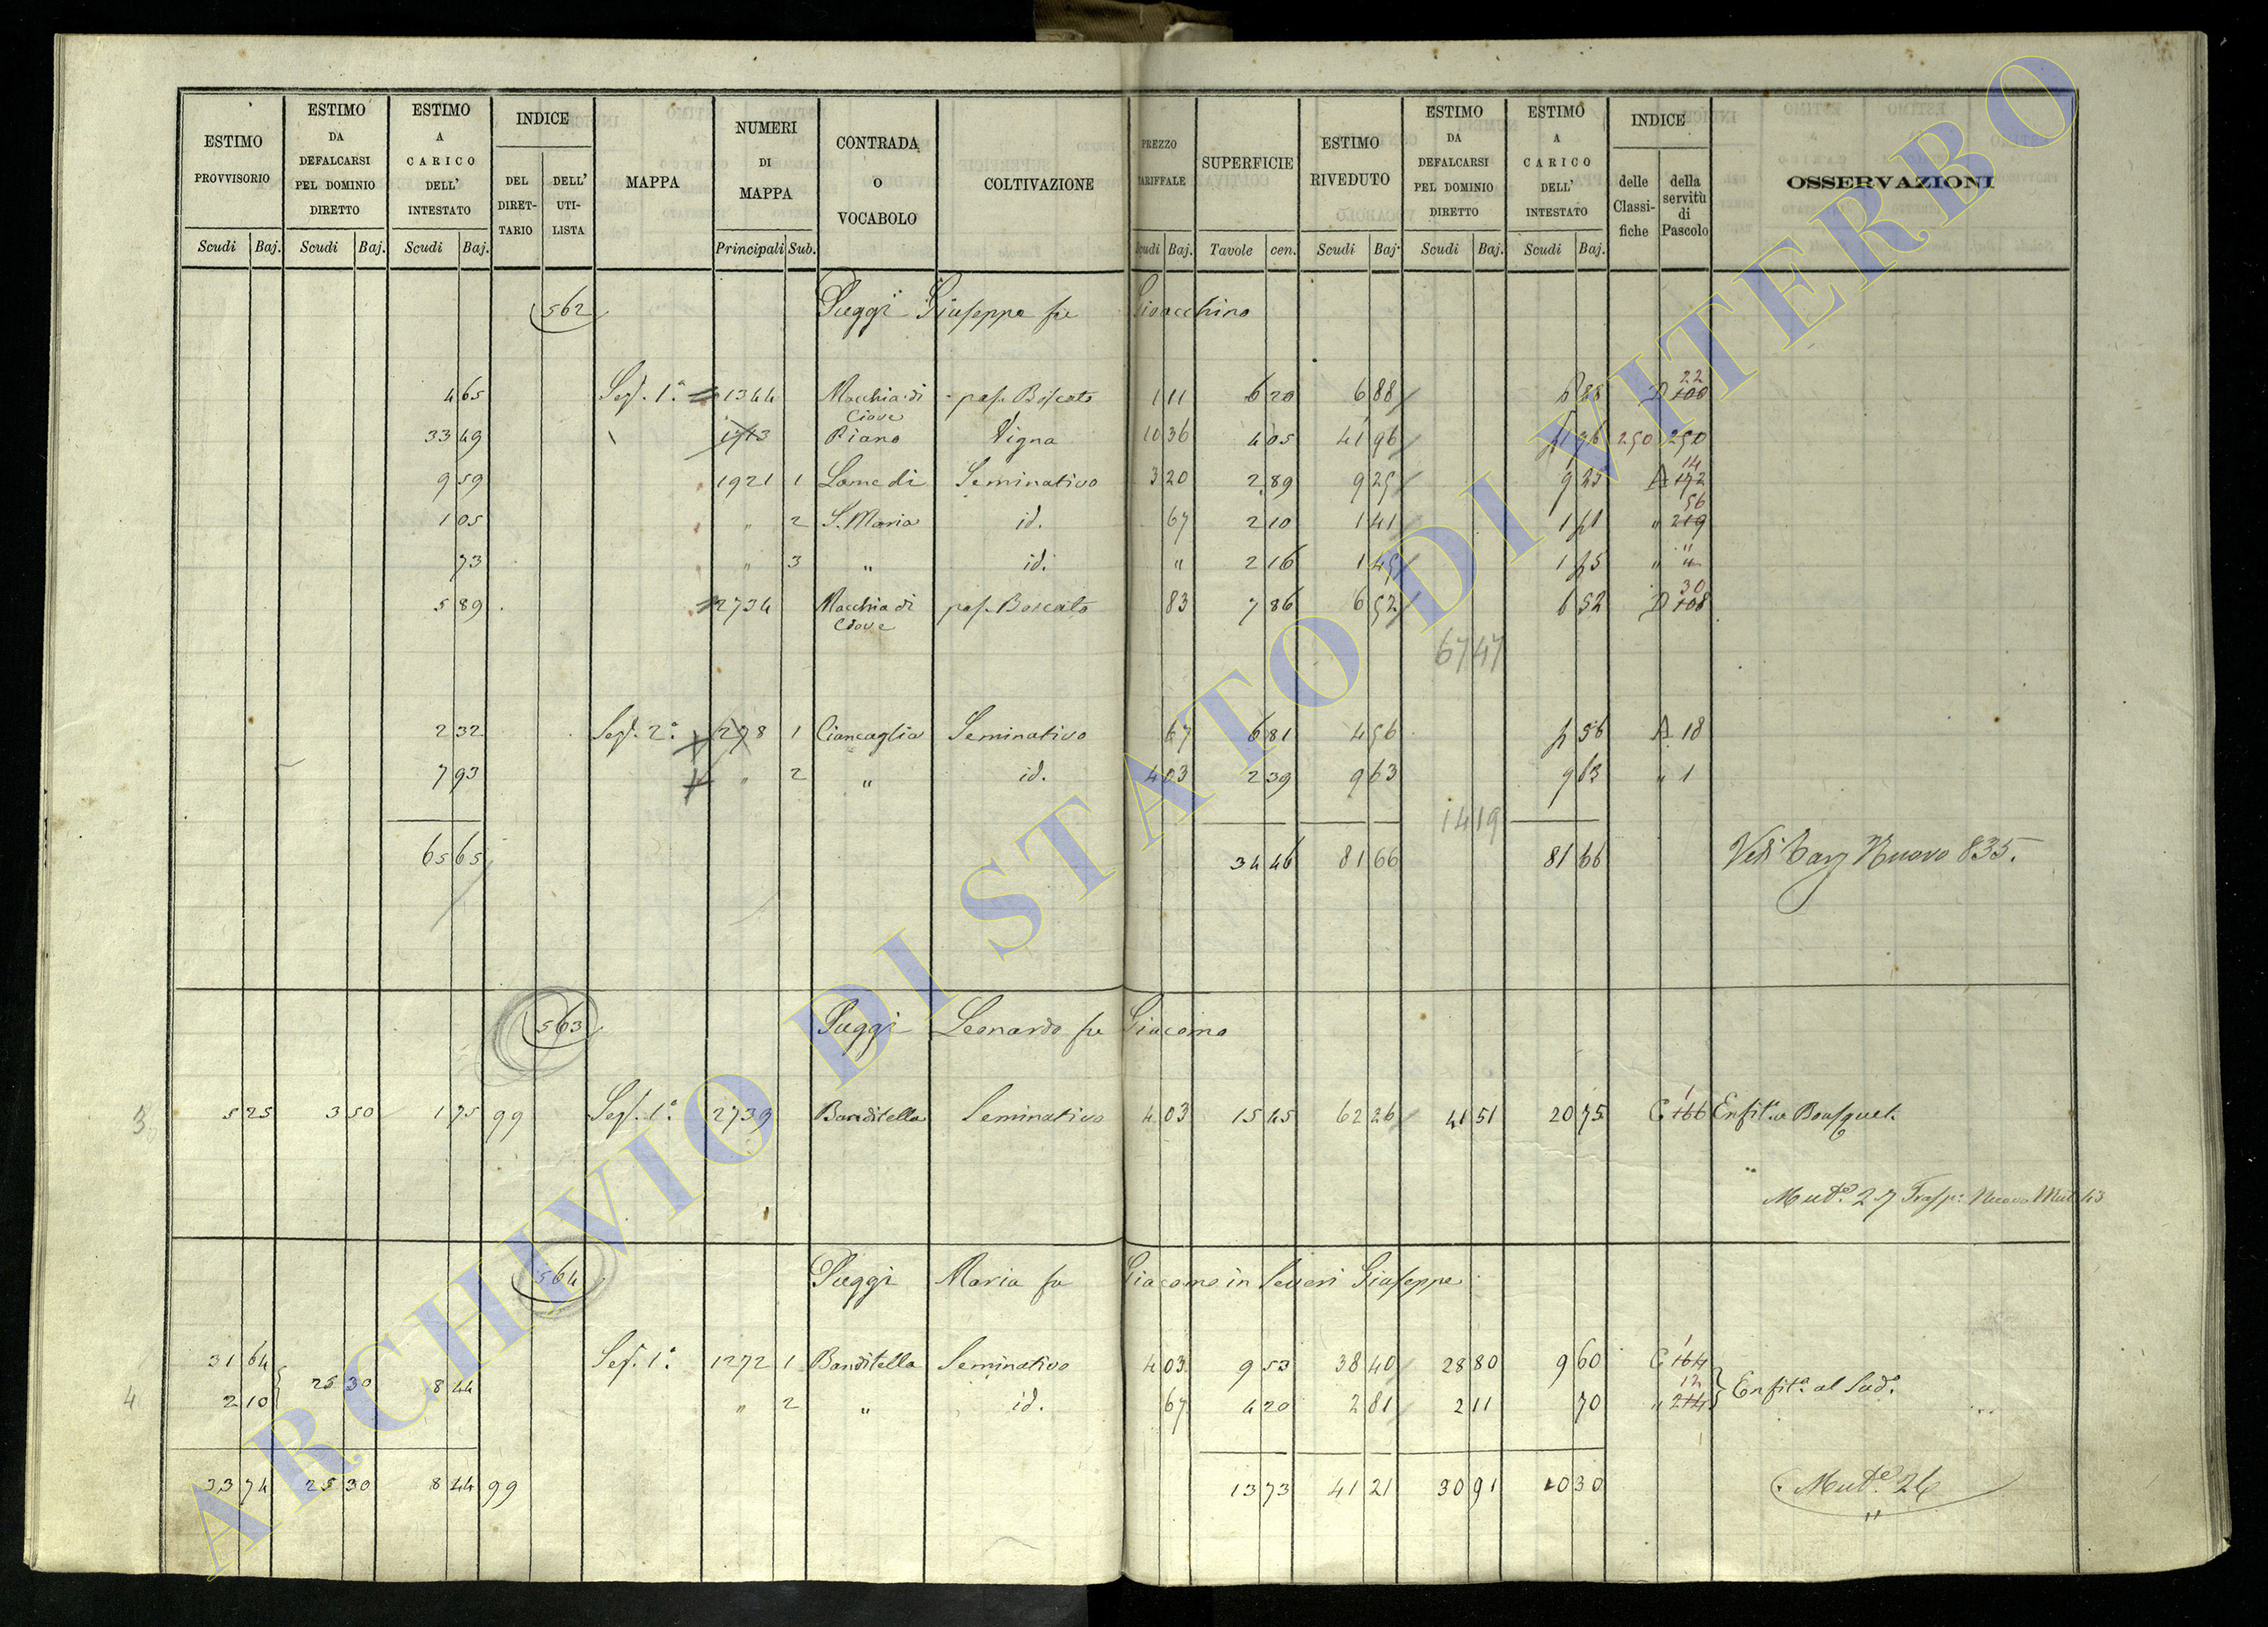 ESTIMO PROVVISORIO Scudi Baj.
ESTIMO DA DEFALCARSI PEL DOMINIO DIRETTO Scudi Baj.
ESTIMO A CARICO DELL' INTESTATO Scudi Baj.
INDICE DEL DIRET-TARIO DELL' UTI-LISTA
MAPPA
NUMERI DI MAPPA Principali Sub.
CONTRADA O VOCABOLO
COLTIVAZIONE
PREZZO TARIFFALE Scudi Baj.
SUPERFICIE Tavole cen.
ESTIMO RIVEDUTO Scudi Baj.
ESTIMO DA DEFALCARSI PEL DOMINIO DIRETTO Scudi Baj.
ESTIMO A CARICO DELL' INTESTATO Scudi Baj.
INDICE delle Classi-fiche della servitù di Pascolo
OSSERVAZIONI
562 Puggi Giuseppe fu Gioacchino
4 65 Sez. 1a 1344 Macchia di Ciove pas. Boscato 1 11 6 20 6 88 6 88 D 22 100
33 49 1713 Piano Vigna 10 36 4 05 41 96 41 96 250 250
9 59 1921 1 Lame di Seminativo 3 20 2 89 9 25 9 25 A 14 172
1 05 " 2 S. Maria id. 67 2 10 1 41 1 41 " 56 219
73 " 3 " id. " 2 16 1 45 1 45 " " "
5 89 2734 Macchia di Ciove pas. Boscato 83 7 86 6 52 6 52 D 30 108
67 47
2 32 Sez. 2a 278 1 Ciancaglia Seminativo 67 6 81 4 56 4 56 A 18
7 93 " 2 " id. 4 03 2 39 9 63 9 63 " 1
14 19
65 65 34 46 81 66 81 66 Nuovo 835.
563 Puggi Leonardo fu Giacomo
3 5 25 3 50 1 75 99 Sez. 1a 2739 Banditella Seminativo 4 03 15 45 62 26 41 51 20 75 C 1 166 Enfit.a Bousquet
Mut.e 27 Trasp. Nuovo Mut 43
564 Puggi Maria fu Giacomo in Severi Giuseppe
31 64 Sez. 1a 1272 1 Banditella Seminativo 4 03 9 53 38 40 28 80 9 60 C 1 164
4 2 10 25 30 8 44 " 2 " id. 67 4 20 2 81 2 11 70 " 12 214 Enfit.a al Sud.o
33 74 25 30 8 44 99 13 73 41 21 30 91 10 30 Mut.e 26
ARCHIVIO DI STATO DI VITERBO